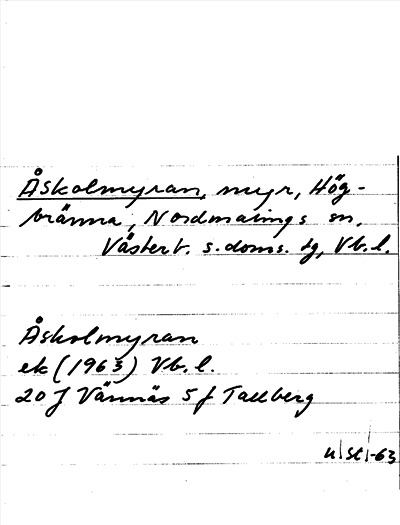 Åskolmyran, myr, Hög-
bränna, Nordmalings sn,
Västerb. s. doms. tg, Vb. l.
Åskolmyran
ek (1963) Vb. l.
20 J Vännäs 5 f Tallberg